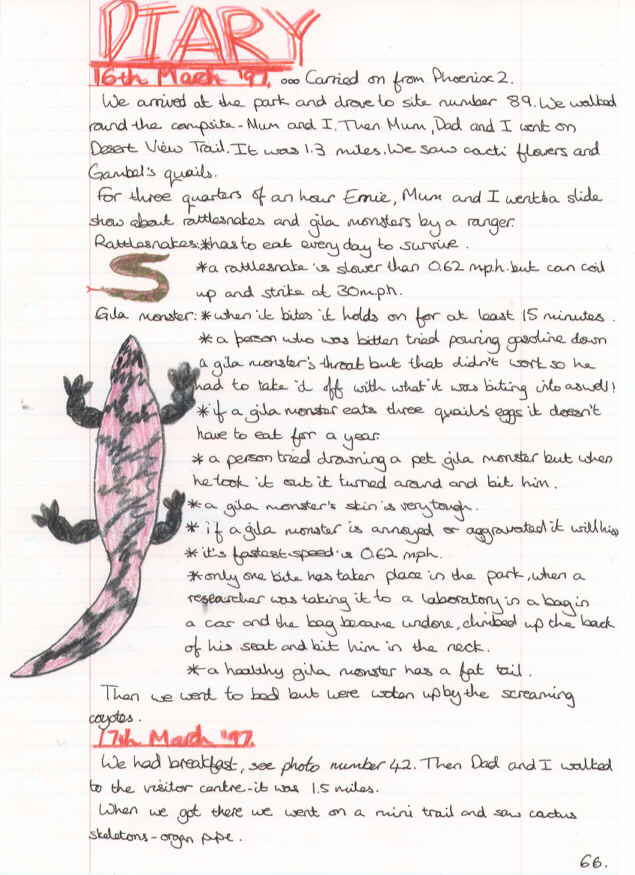 DIARY
16th March '97. ooo Carried on from Phoenix 2.
We arrived at the park and drove to site number 89. We walked
round the campsite - Mum and I. Then Mum, Dad and I went on
Desert View Trail. It was 1.3 miles. We saw cacti flowers and
Gambel's quails.
For three quarters of an hour Ernie, Mum and I went to a slide
show about rattlesnakes and gila monsters by a ranger.
Rattlesnakes: *has to eat every day to survive.
*a rattlesnake is slower than 0.62 m.p.h. but can coil
up and strike at 30m.p.h.
Gila monster: *when it bites it holds on for at least 15 minutes.
*a person who was bitten tried pouring gasoline down
a gila monster's throat but that didn't work so he
had to take it off with what it was biting into aswell!
*if a gila monster eats three quails' eggs it doesn't
have to eat for a year.
*a person tried drowning a pet gila monster but when
he took it out it turned around and bit him.
*a gila monster's skin is very tough.
*if a gila monster is annoyed or aggravated it will hiss
*it's fastest speed is 0.62 mph.
*only one bite has taken place in the park, when a
researcher was taking it to a laboratory in a bag in
a car and the bag became undone, climbed up the back
of his seat and bit him in the neck.
*a healthy gila monster has a fat tail.
Then we went to bed but were woken up by the screaming
coyotes.
17th March '97.
We had breakfast, see photo number 42. Then Dad and I walked
to the visitor centre - it was 1.5 miles.
When we got there we went on a mini trail and saw cactus
skeletons - organ pipe.
66.